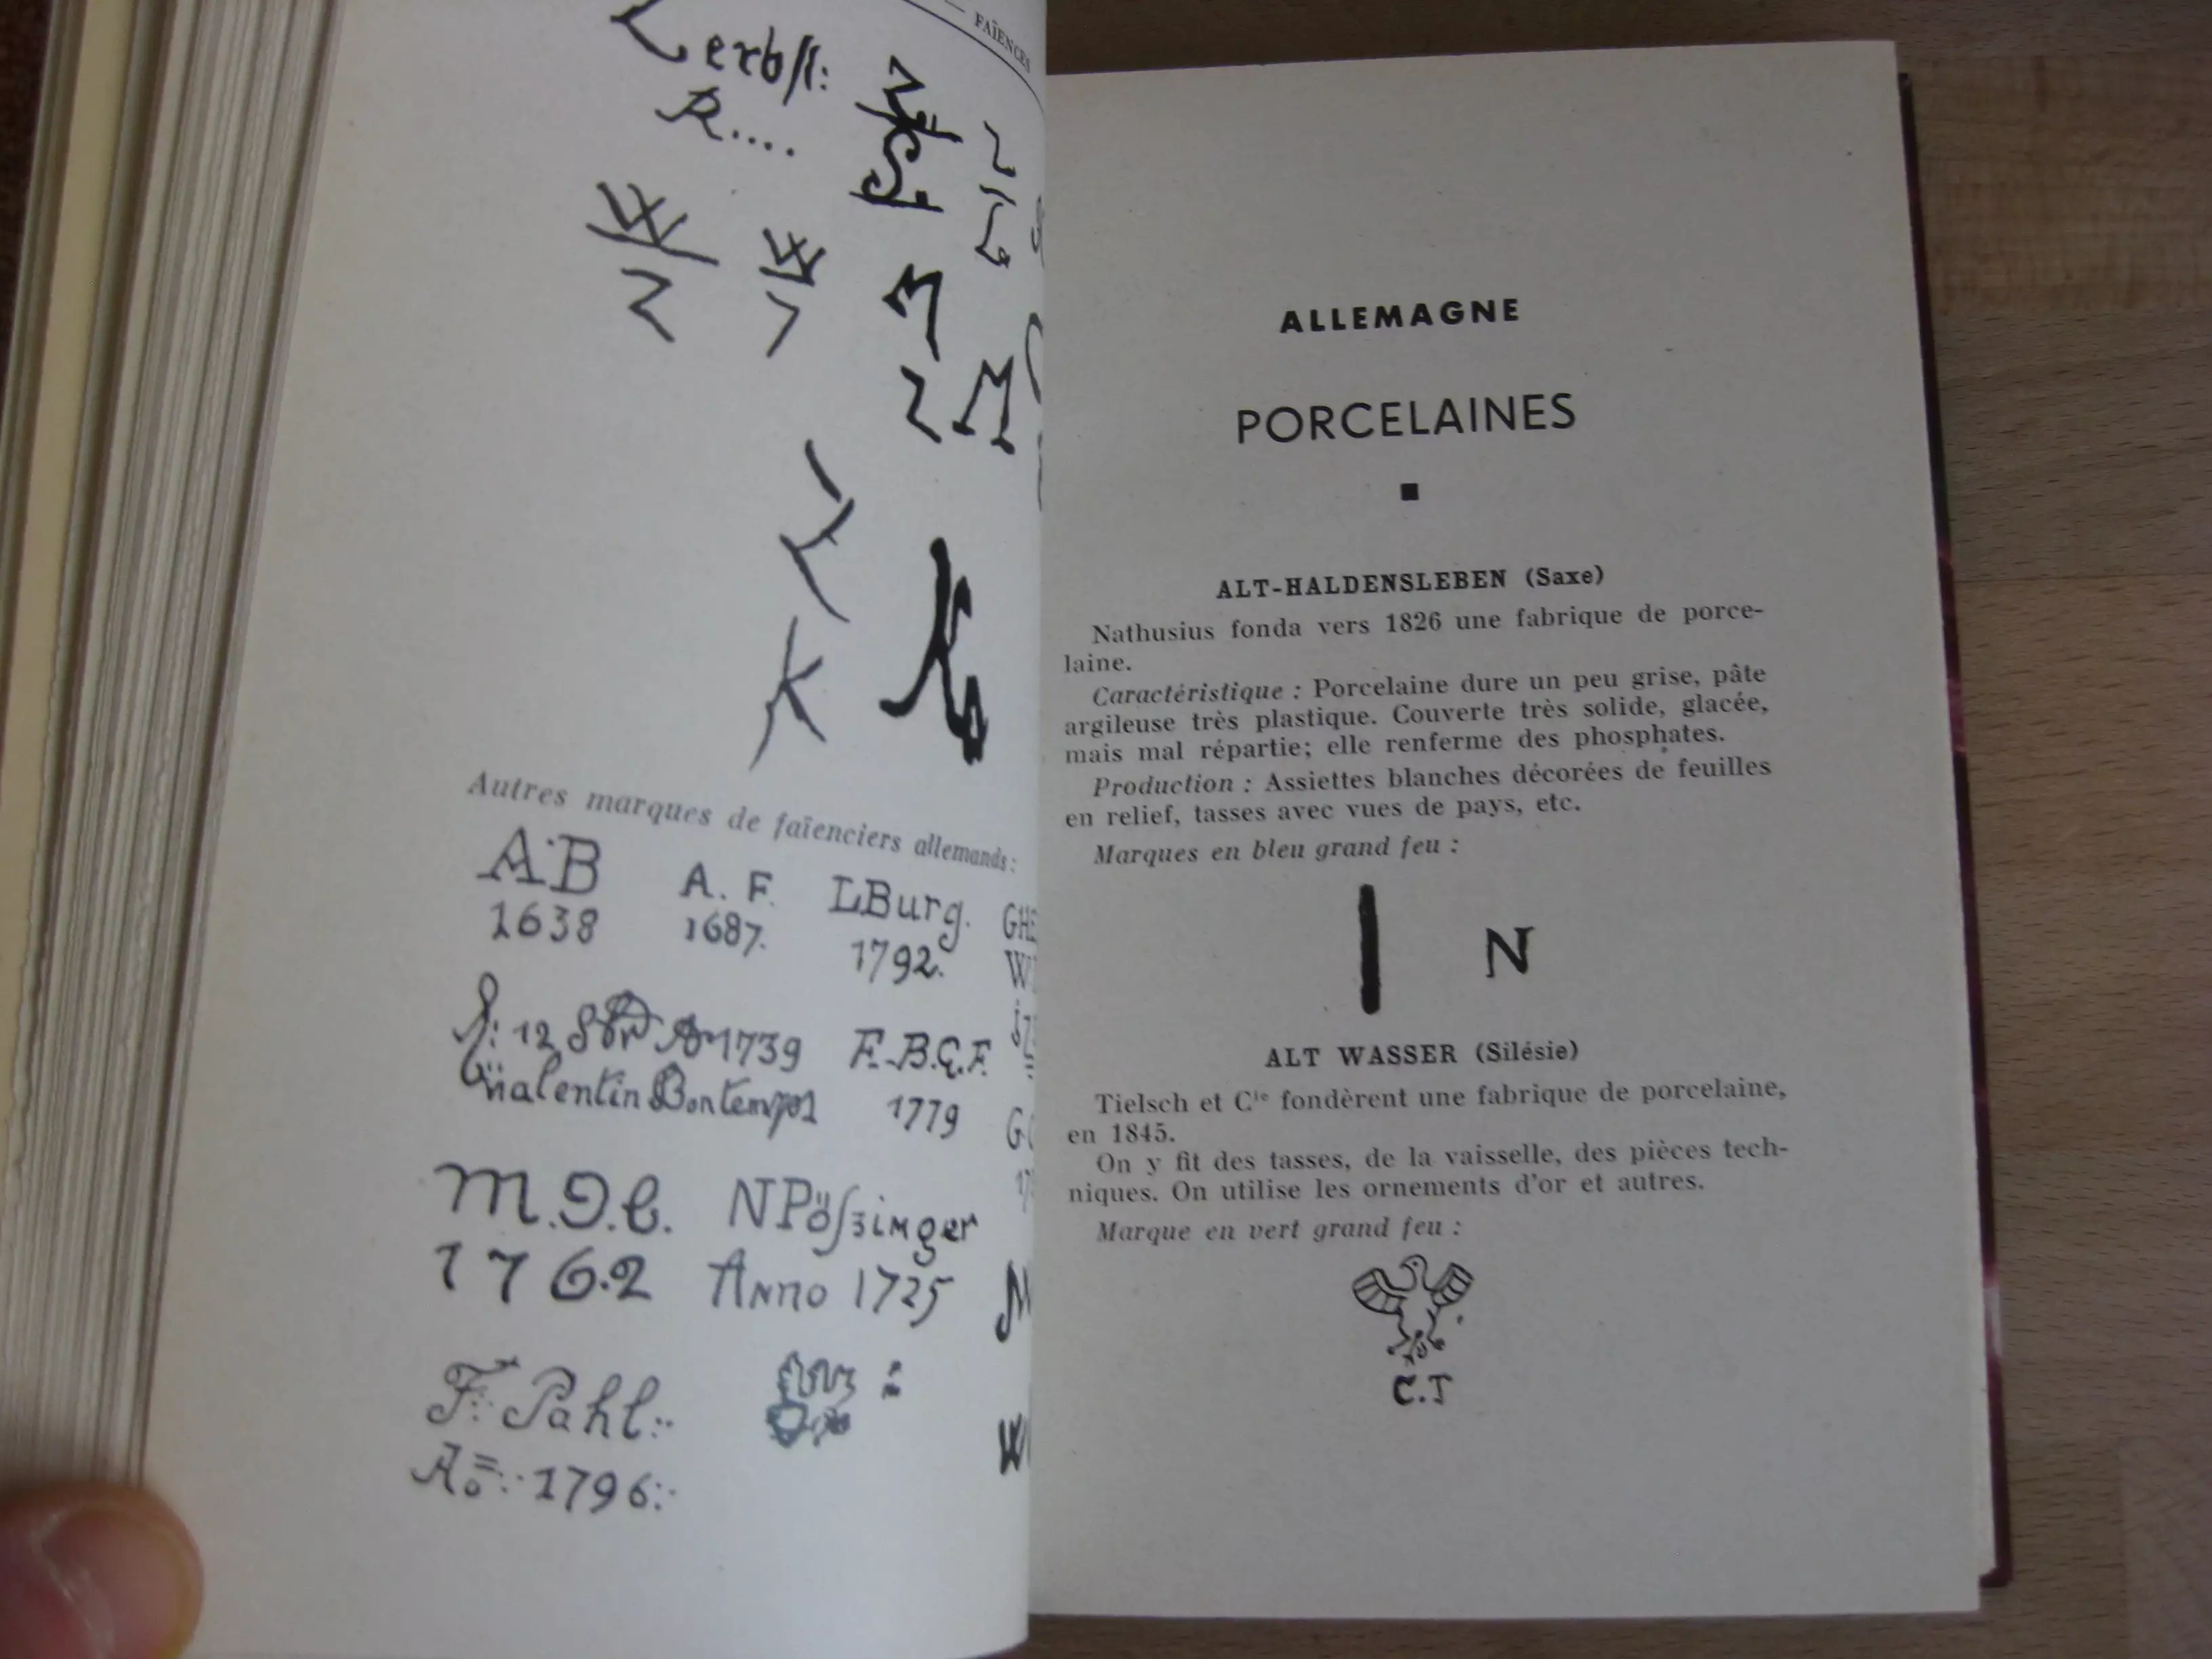 — FAÏENCES
Zerbst:
R....
Z
M
Z M
K
Autres marques de faïenciers allemands:
A·B A. F. LBurg. GHE
1638 1687. 1792. W
12 1739 F.B.G.F.
Valentin Bontemps 1779
M.D.C. NPößzinger
1762 Anno 1725
F: Pahl:
Ao 1796:
ALLEMAGNE
PORCELAINES
ALT-HALDENSLEBEN (Saxe)
Nathusius fonda vers 1826 une fabrique de porce-
laine.
Caractéristique : Porcelaine dure un peu grise, pâte
argileuse très plastique. Couverte très solide, glacée,
mais mal répartie; elle renferme des phosphates.
Production : Assiettes blanches décorées de feuilles
en relief, tasses avec vues de pays, etc.
Marques en bleu grand feu :
I N
ALT WASSER (Silésie)
Tielsch et Cie fondèrent une fabrique de porcelaine,
en 1845.
On y fit des tasses, de la vaisselle, des pièces tech-
niques. On utilise les ornements d'or et autres.
Marque en vert grand feu :
C.T